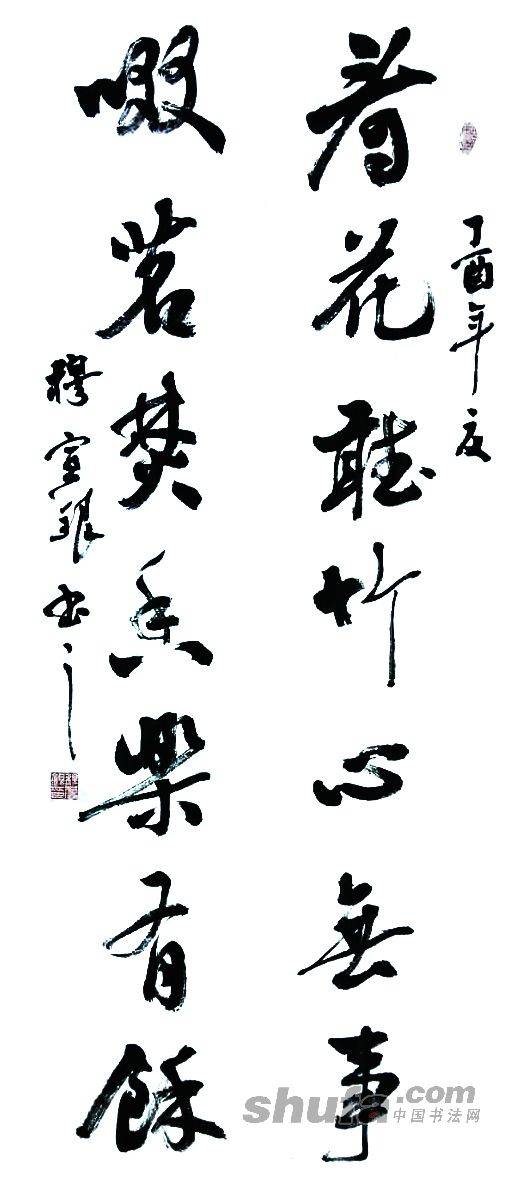 丁酉年夏
看花聽竹心無事
啜茗焚香樂有餘
穆宣銀书
shufa.com
中国书法网